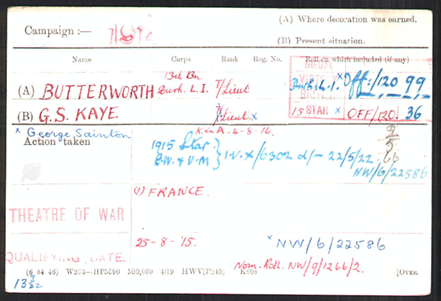 (A) Where decoration was earned.
Campaign :—
(B) Present situation.
Name Corps Rank Reg. No. Roll on which included (if any)
13th Bn
(A) BUTTERWORTH Durh. L. I. T/Lieut Durh. L. I. x Off/120 99
(B) G.S. KAYE. T/Lieut x 15 STAR x OFF/120. 36
x George Sainton K in A. 4-8-16.
Action taken
1915 Star
B.W. & V.M } I.V. x/6302 d/- 22/5/22.
NW/6/22586
(1) FRANCE.
THEATRE OF WAR
QUALIFYING DATE.
25-8-'15. x NW/6/22586
Nom. Roll. NW/9/1266/2.
(6 34 46) W234—HP5590 500,000 4/19 HWV(P240) K608 [OVER.